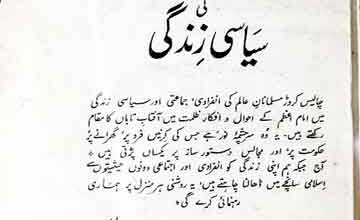 کی
سیاسی زندگی
چالیس کروڑ مسلمانانِ عالم کی انفرادی، جماعتی اور سیاسی زندگی
میں امام اعظم کے احوال و افکار ظلمت میں آفتابِ تاباں کا مقام
رکھتے ہیں۔ یہ وہ سرچشمۂ نور ہے جس کی کرنیں فرد پر، گھرانے پر
حکومت پر، اور مجالس دستور ساز پر یکساں پڑتی ہیں
آج جبکہ ہم اپنی زندگی کو انفرادی اور اجتماعی دونوں حیثیتوں سے
اسلامی سانچے میں ڈھالنا چاہتے ہیں، یہ روشنی ہر منزل پر ہماری
رہنمائی کرے گی۔